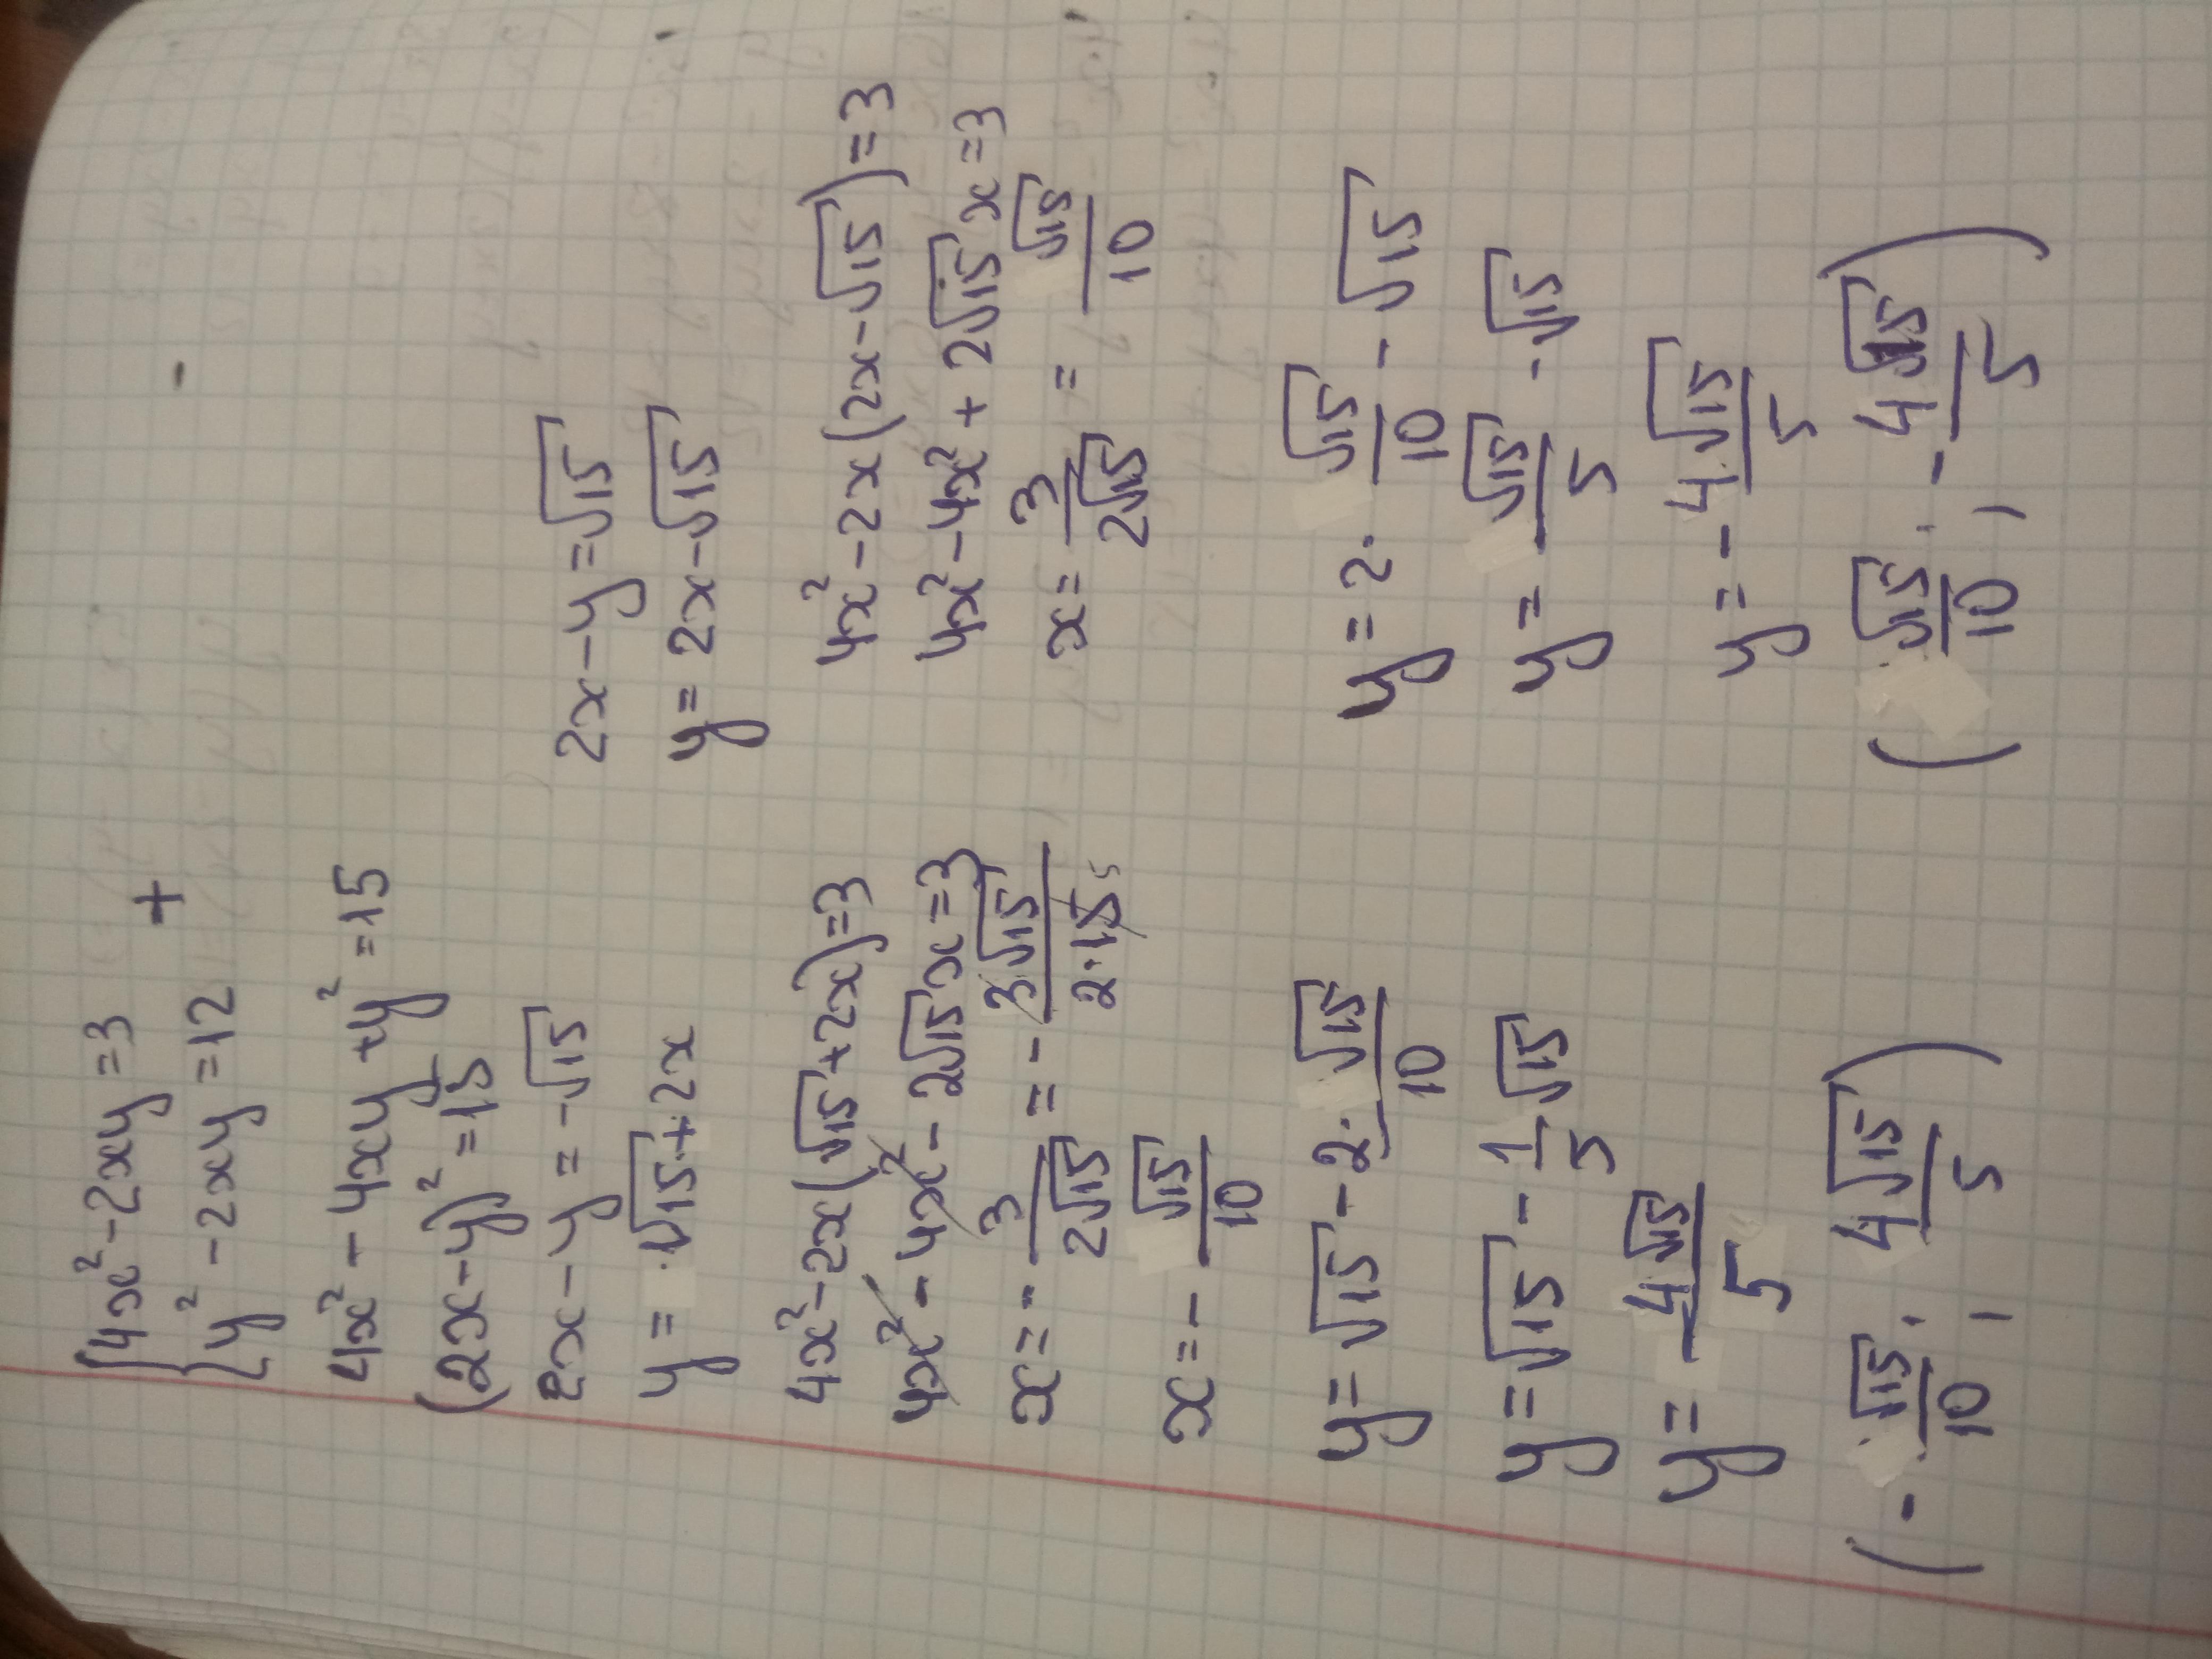 {4x²-2xy=3 +
{y²-2xy=12
4x²-4xy+y²=15
(2x-y)²=15
2x-y=-√15
y=√15+2x
4x²-2x(√15+2x)=3
4x²-4x²-2√15x=3
x=-3/(2√15)=-(3√15)/(2·15) 5
x=-√15/10
y=√15-2·√15/10
y=√15-1/5√15
y=4√15/5
(-√15/10; 4√15/5)
2x-y=√15
y=2x-√15
4x²-2x(2x-√15)=3
4x²-4x²+2√15x=3
x=3/(2√15)=√15/10
y=2·√15/10-√15
y=√15/5-√15
y=-4√15/5
(√15/10; -4√15/5)